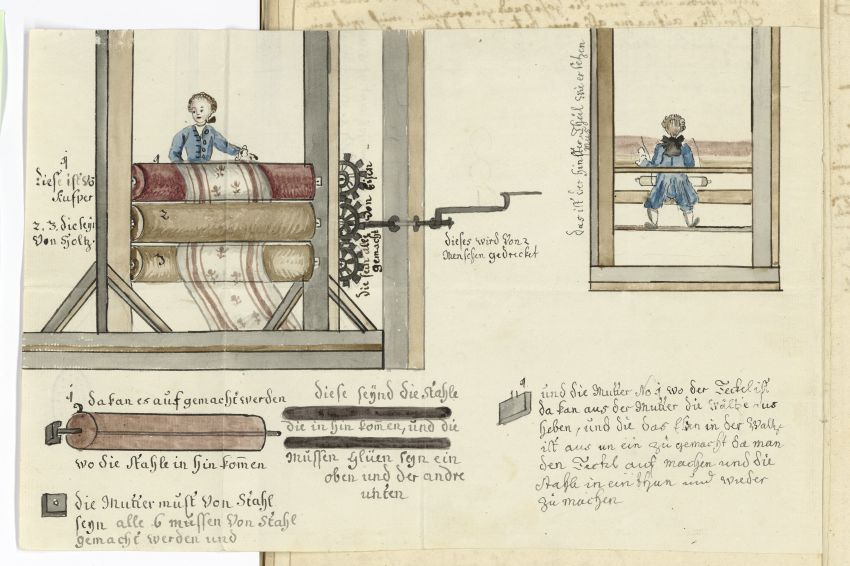 1
diese ist Vo
Kupver
2. 3. die seyn
Von Holtz
1
2
3
die sein alle Von Eisen
gemacht
dieses wird Von 2
Menschen gedrecket
das ist der hinster Theil wie er sehen
mus
1
da kan es auf gemacht werden
wo die Stahle in hin kommen
diese seynd die Stahle
die in hin komen, und die
Müssen glüen seyn ein
oben und der andre
unten
die Mutter must Von Stahl
seyn alle 6 müssen Von Stahl
gemacht werden und
1
und die Mutter No 1 wo der Teckel ist
da kan aus der Mutter die Waltze aus
heben, und die das Eisen in der Waltz
ist auf un ein zu gemacht da man
den Teckel auf machen und die
Stahle in ein thun und wieder
zu machen